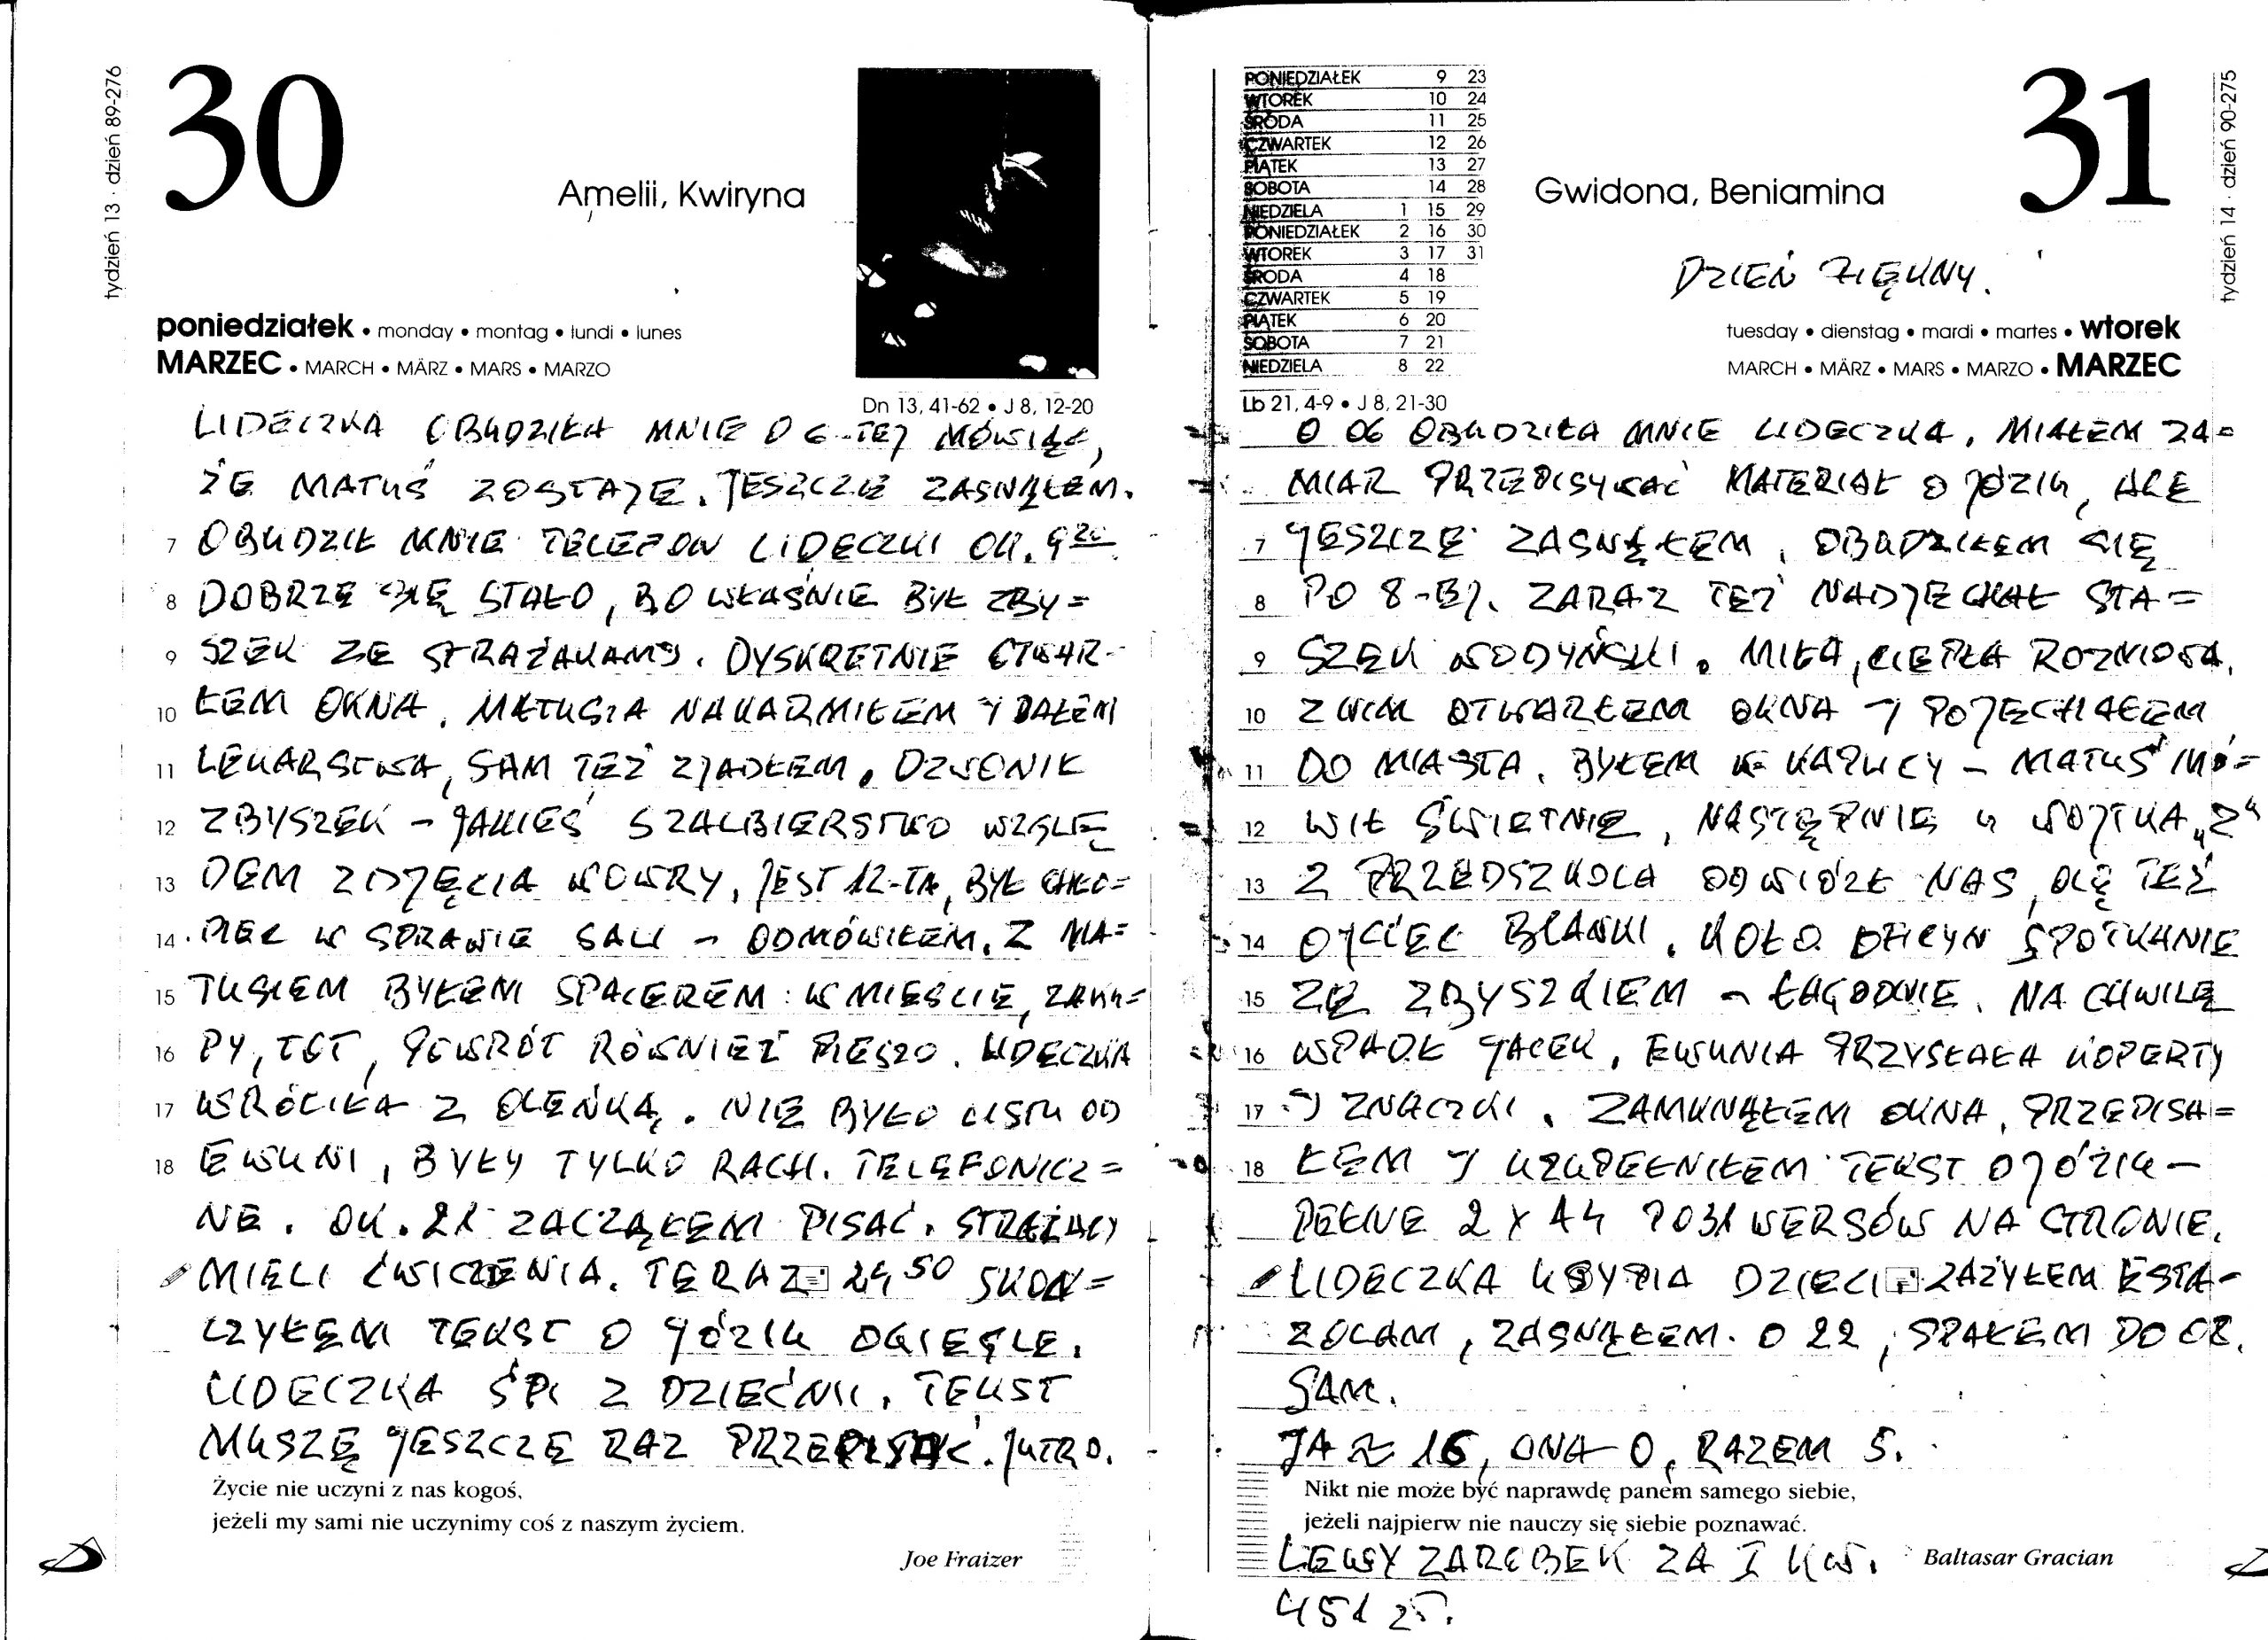 tydzień 13 · dzień 89-276
30
Amelii, Kwiryna
poniedziałek • monday • montag • lundi • lunes
MARZEC • MARCH • MÄRZ • MARS • MARZO
Dn 13, 41-62 • J 8, 12-20
LIDECZKA OBUDZIŁA MNIE O 6-TEJ MÓWIĄC,
ŻE MATUŚ ZOSTAJE. JESZCZE ZASNĄŁEM.
7 OBUDZIŁ MNIE TELEFON LIDECZKI OK. 9 20
8 DOBRZE SIĘ STAŁO, BO WŁAŚNIE BYŁ ZBY=
9 SZEK ZE STRAŻAKAMI. DYSKRETNIE OTWAR-
10 ŁEM OKNA. MATUSIA NAKARMIŁEM I DAŁEM
11 LEKARSTWA, SAM TEŻ ZJADŁEM. DZWONIŁ
12 ZBYSZEK – JAKIEŚ SZALBIERSTWO WZGLĘ
13 DEM ZDJĘCIA KOWRY. JEST 12-TA, BYŁ CHŁO=
14 PIEC W SPRAWIE SALI – ODMÓWIŁEM. Z MA=
15 TUSIEM BYŁEM SPACEREM W MIEŚCIE, ZAKU=
16 PY, TOT, POWRÓT RÓWNIEŻ PIESZO. LIDECZKA
17 WRÓCIŁA Z OLEŃKĄ. NIE BYŁO LISTU OD
18 EWUNI, BYŁY TYLKO RACH. TELEFONICZ=
NE. OK. 21 ZACZĄŁEM PISAĆ. STRAŻACY
MIELI ĆWICZENIA. TERAZ 24 50 SKOŃ=
CZYŁEM TEKST O JÓZIU OGIEGLE.
LIDECZKA ŚPI Z DZIEĆMI. TEKST
MUSZĘ JESZCZE RAZ PRZEPISAĆ. JUTRO.
Życie nie uczyni z nas kogoś,
jeżeli my sami nie uczynimy coś z naszym życiem.
Joe Fraizer
PONIEDZIAŁEK 9 23
WTOREK 10 24
ŚRODA 11 25
CZWARTEK 12 26
PIĄTEK 13 27
SOBOTA 14 28
NIEDZIELA 1 15 29
PONIEDZIAŁEK 2 16 30
WTOREK 3 17 31
ŚRODA 4 18
CZWARTEK 5 19
PIĄTEK 6 20
SOBOTA 7 21
NIEDZIELA 8 22
Gwidona, Beniamina
31
tydzień 14 · dzień 90-275
DZIEŃ PIĘKNY.
tuesday • dienstag • mardi • martes • wtorek
MARCH • MÄRZ • MARS • MARZO • MARZEC
Lb 21, 4-9 • J 8, 21-30
O 06 OBUDZIŁA MNIE LIDECZKA. MIAŁEM ZA=
MIAR PRZEPISYWAĆ MATERIAŁ O JÓZIU, ALE
7 JESZCZE ZASNĄŁEM. OBUDZIŁEM SIĘ
8 PO 8-EJ. ZARAZ TEŻ NADJECHAŁ STA=
9 SZEK WODYŃSKI. MIŁA, CIEPŁA ROZMOWA.
10 Z NIM OTWARŁEM OKNA I POJECHAŁEM
11 DO MIASTA. BYŁEM W KAPLICY – MATUŚ MÓ=
12 WIŁ ŚWIETNIE, NASTĘPNIE U WOJTKA „Z"
13 Z PRZEDSZKOLA ODWIÓZŁ NAS, OLĘ TEŻ
14 OJCIEC BLANKI. KOŁO OFICYN SPOTKANIE
15 ZE ZBYSZKIEM – ŁAGODNIE. NA CHWILĘ
16 WPADŁ JACEK, EWUNIA PRZYSŁAŁA KOPERTY
17 I ZNACZKI. ZAMKNĄŁEM OKNA, PRZEPISA=
18 ŁEM I UZUPEŁNIŁEM TEKST O JÓZIU –
PEŁNE 2 X A4 PO 31 WERSÓW NA STRONIE.
LIDECZKA USYPIA DZIECI ZAŻYŁEM ESTA-
ZOLAM, ZASNĄŁEM O 22, SPAŁEM DO 02.
SAM.
JA 16, ONA 0, RAZEM 5.
Nikt nie może być naprawdę panem samego siebie,
jeżeli najpierw nie nauczy się siebie poznawać.
LEWY ZAROBEK ZA I KW.
Baltasar Gracian
451 zł.